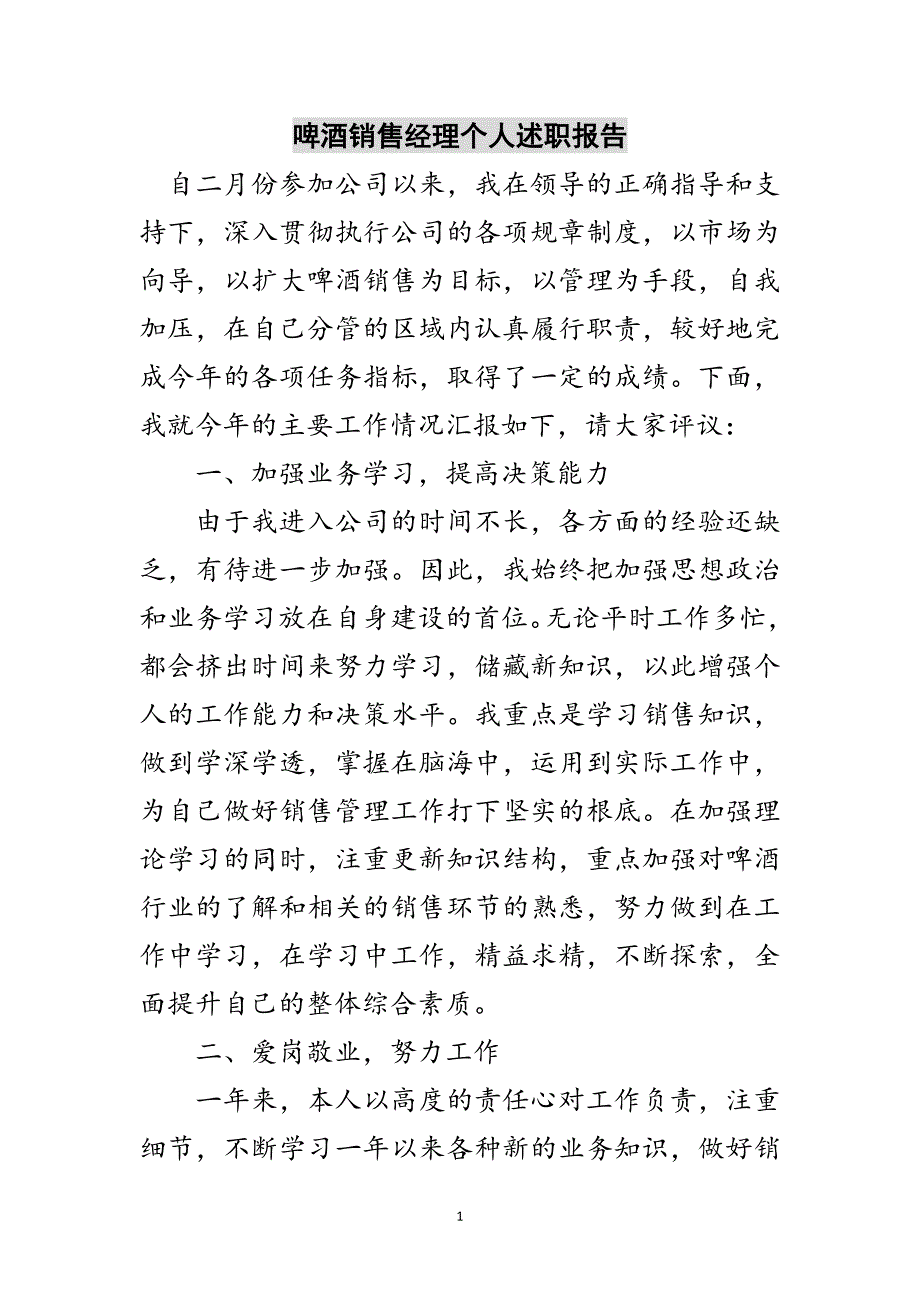 啤酒销售经理个人述职报告
自二月份参加公司以来，我在领导的正确指导和支
持下，深入贯彻执行公司的各项规章制度，以市场为
向导，以扩大啤酒销售为目标，以管理为手段，自我
加压，在自己分管的区域内认真履行职责，较好地完
成今年的各项任务指标，取得了一定的成绩。下面，
我就今年的主要工作情况汇报如下，请大家评议：
一、加强业务学习，提高决策能力
由于我进入公司的时间不长，各方面的经验还缺
乏，有待进一步加强。因此，我始终把加强思想政治
和业务学习放在自身建设的首位。无论平时工作多忙，
都会挤出时间来努力学习，储藏新知识，以此增强个
人的工作能力和决策水平。我重点是学习销售知识，
做到学深学透，掌握在脑海中，运用到实际工作中，
为自己做好销售管理工作打下坚实的根底。在加强理
论学习的同时，注重更新知识结构，重点加强对啤酒
行业的了解和相关的销售环节的熟悉，努力做到在工
作中学习，在学习中工作，精益求精，不断探索，全
面提升自己的整体综合素质。
二、爱岗敬业，努力工作
一年来，本人以高度的责任心对工作负责，注重
细节，不断学习一年以来各种新的业务知识，做好销
1